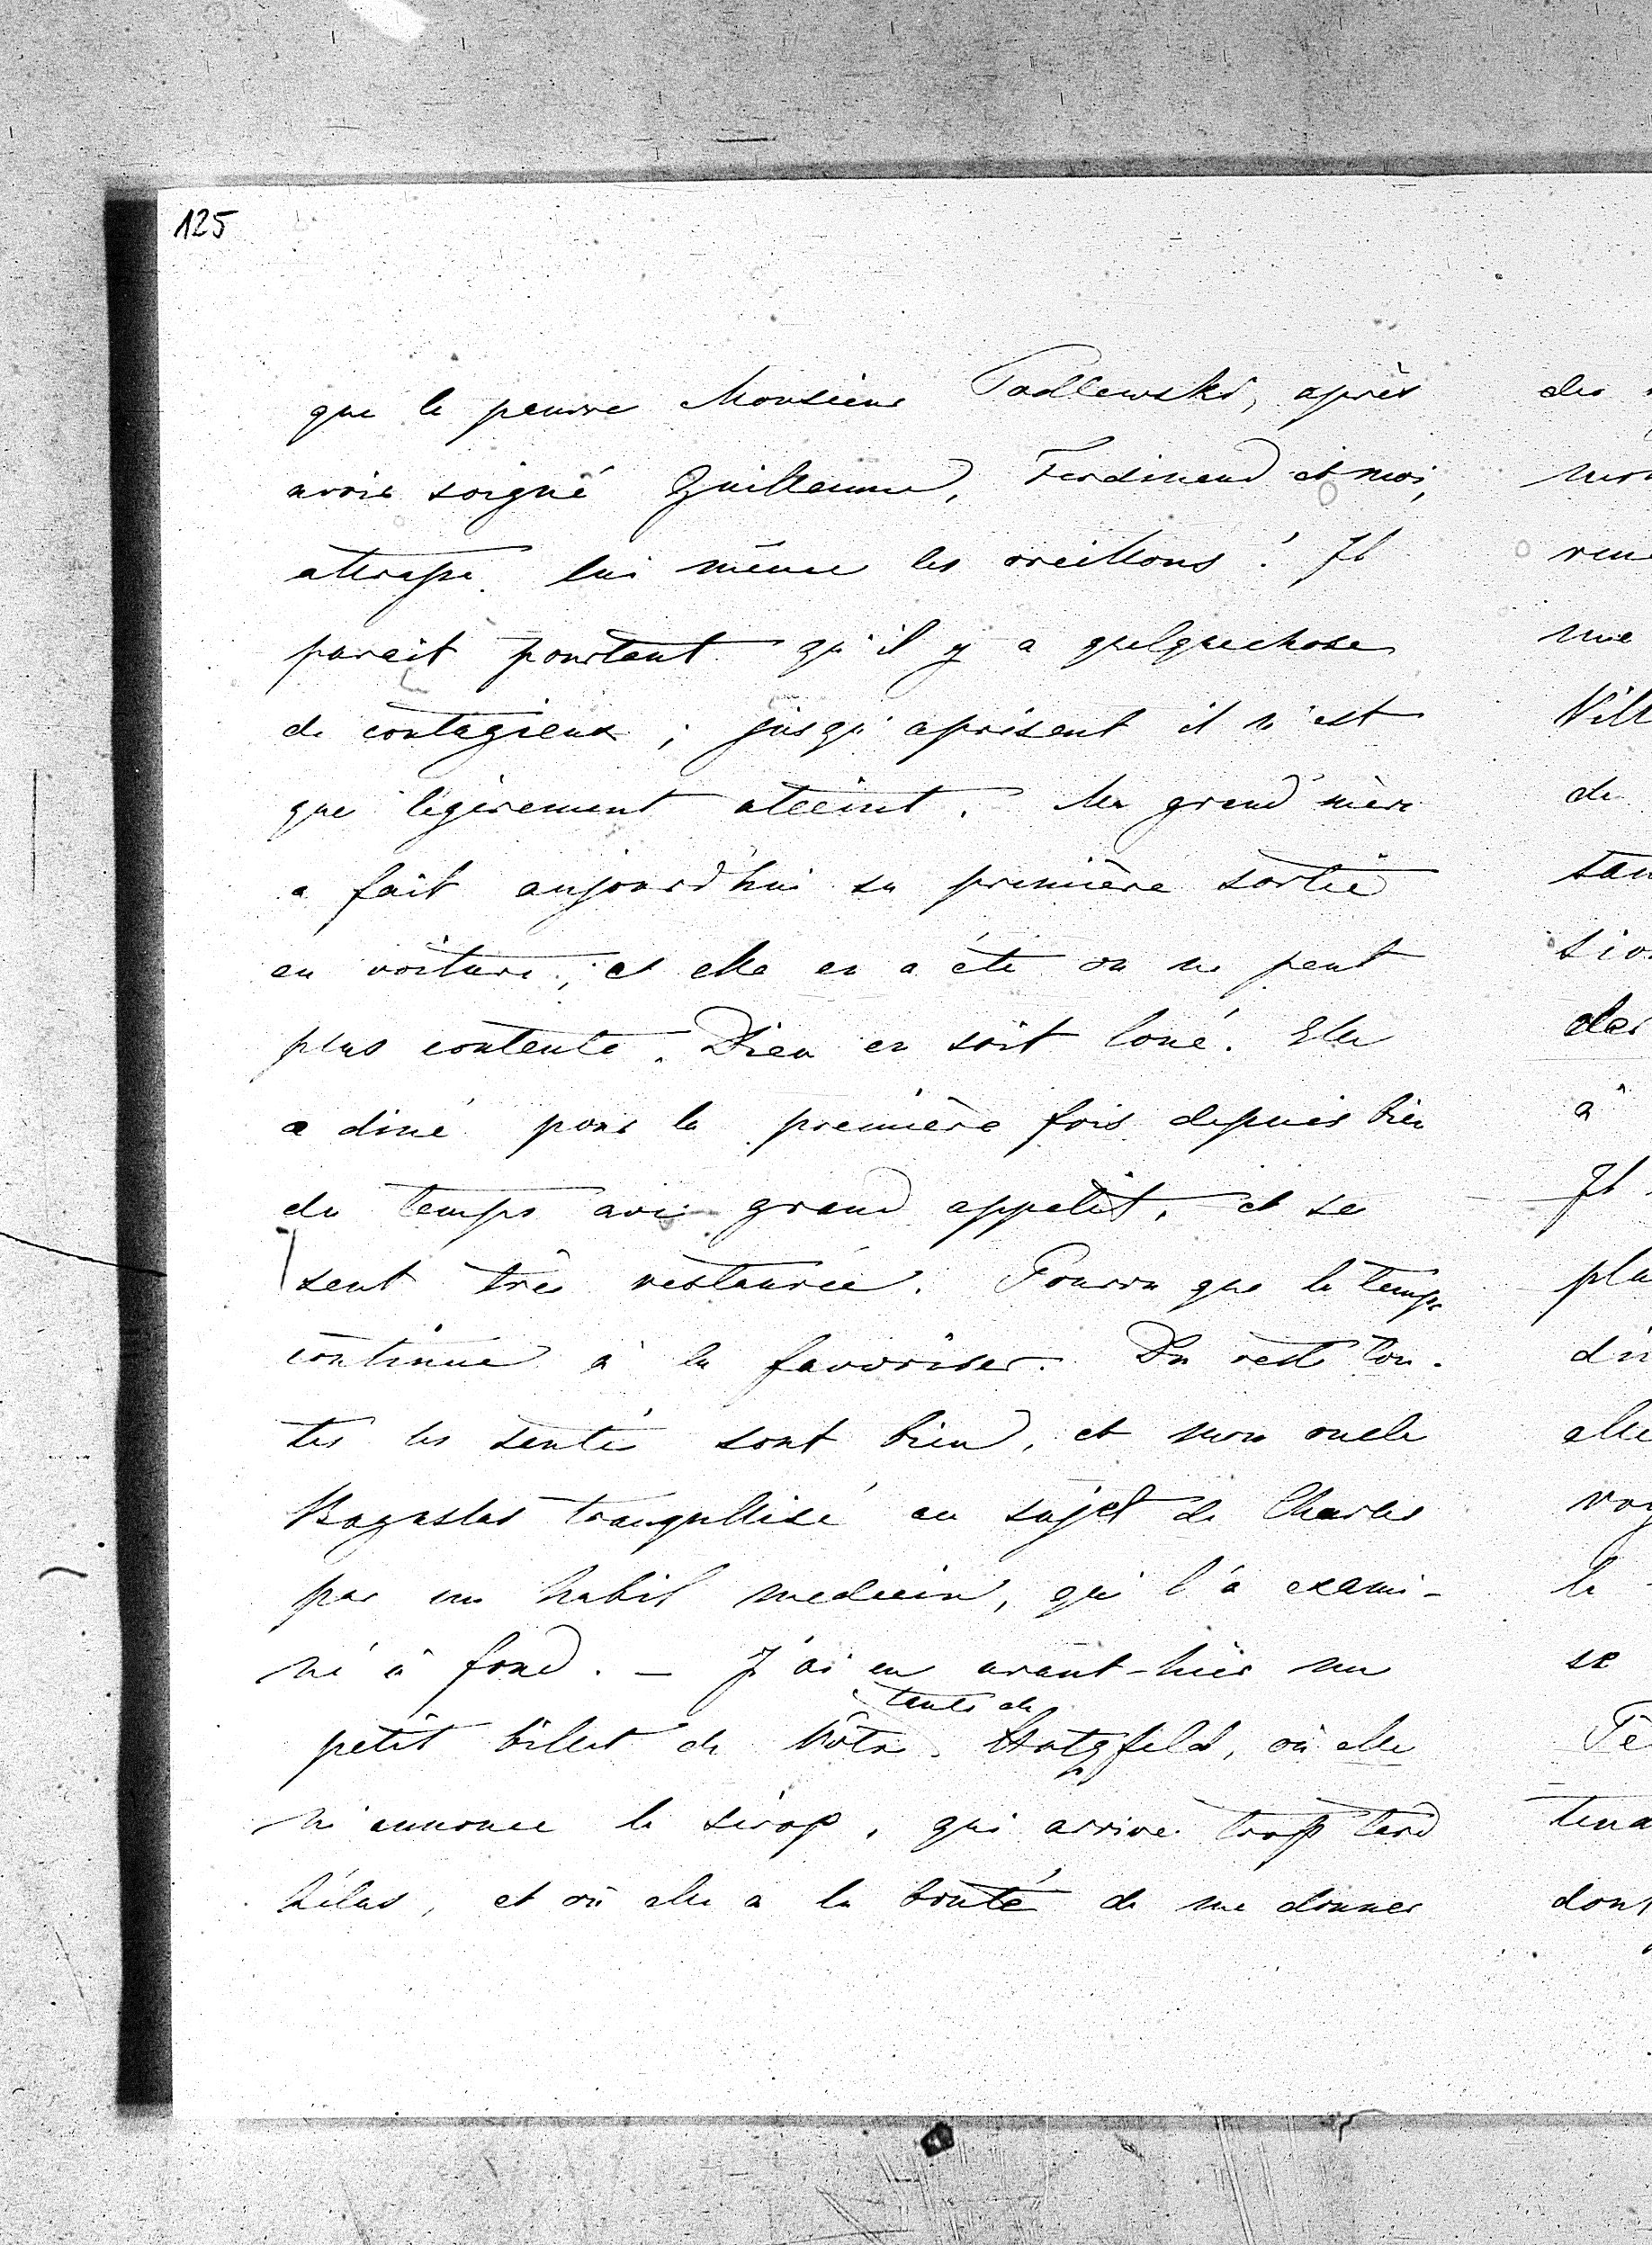 125
que le pauvre Monsieur Podlewski, après
avoir soigné Guillaume, Ferdinand et moi,
attrape lui même les oreillons! Il
parait pourtant qu'il y a quelquechose
de contagieux; jusqu'aprisent il n'est
que legèrement atteint. Ma grand'mère
a fait aujourd'hui sa première sortie
en voiture, et elle en a été on ne peut
plus contente. Dieu en soit loué. Elle
a diné pour la première fois depuis bien
du temps avec grand appetit, et se
sent très restaurée. Pourvu que le temps
continue à la favoriser. Du reste tou-
tes les santés sont bien, et mon oncle
Boguslas tranquillisé au sujet de Charles
par un habil medecin, qui l'a exami-
né à fond. – J'ai eu avant-hier un
tante de
petit billet de Votre Hatzfeld, où elle
m'annonce le sirop, qui arrive trop tard
hélas, et où elle a la bonté de me donner
des
ven
une
Vill
de
san
sion
des
à
Il
plu
d'in
elle
voy
le
se
tena
dont